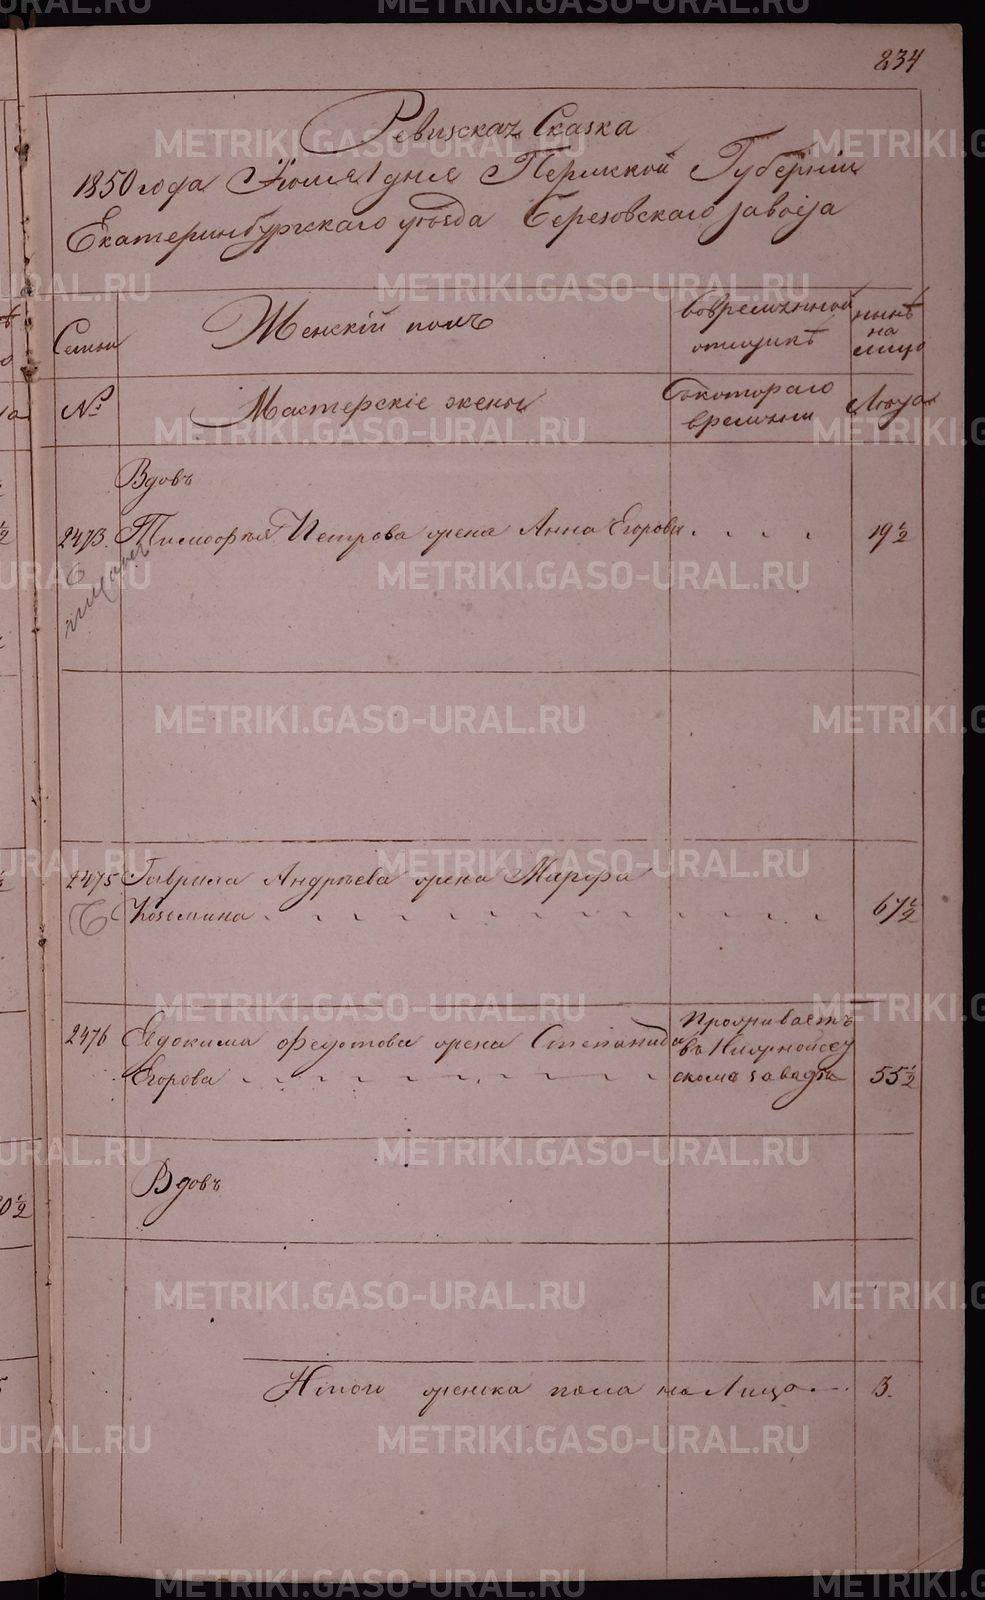 234
Ревизская Сказка
1850 года Июля 1 дня Пермской Губерніи
Екатеринбургскаго уѣзда Березовскаго завода
Семьи
Женскій полъ
вовременной отлучкѣ
нынѣ на лицо
№
Мастерскіе жены
Съкотораго времѣни
Лѣта
Вдовъ
2473. Тимофея Петрова жена Анна Егорова 19 1/2
2475 Гаврила Андрѣева жена Марфа
Козмина 67 1/2
2476 Евдокима Федотова жена Степанида
Проживаетъ
въ Нижнойсеу
Егорова
скомъ заводѣ 55 1/2
Вдовъ
Итого женска пола на Лицо 3.
METRIKI.GASO-URAL.RU